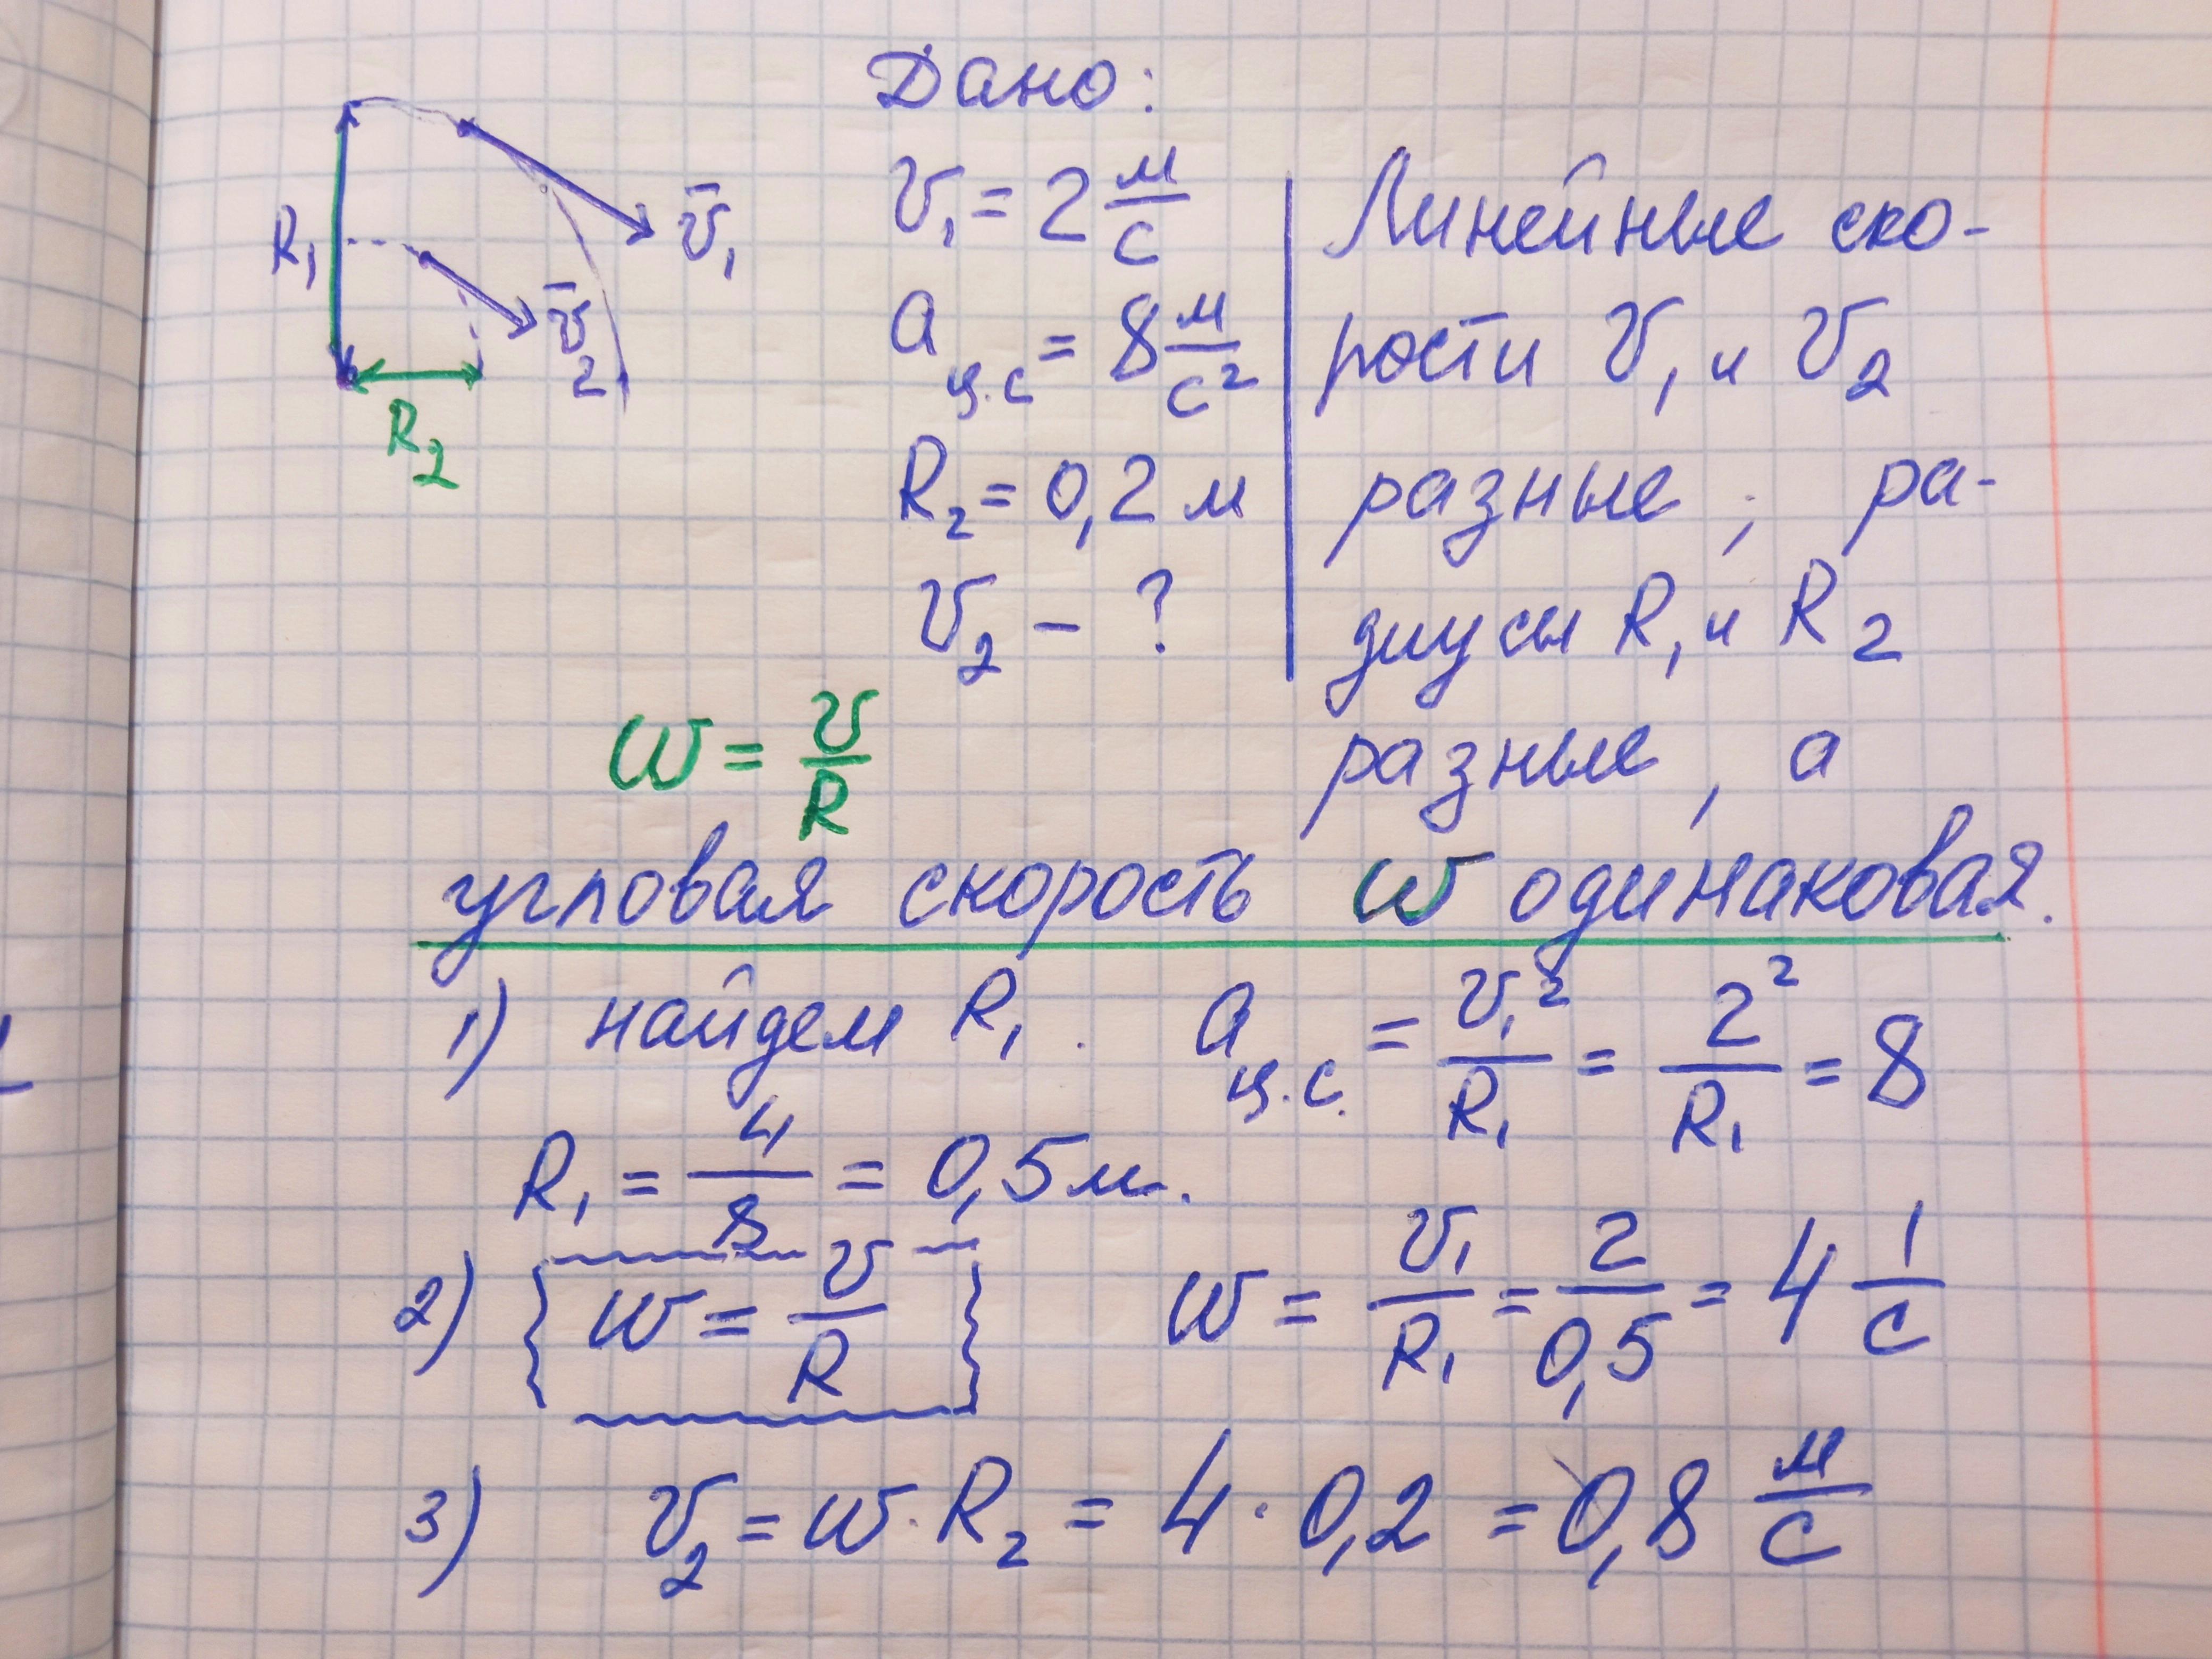 Дано:
R₁
v̄₁
v̄₂
R₂
v₁ = 2 м/с
a ц.с = 8 м/с²
R₂ = 0,2 м
v₂ – ?
Линейные ско-
рости v₁ и v₂
разные, ра-
диусы R₁ и R₂
разные, а
ω = v/R
угловая скорость ω одинаковая.
1) найдем R₁. a ц.с. = v₁²/R₁ = 2²/R₁ = 8
R₁ = 4/8 = 0,5 м.
2) ω = v/R ω = v₁/R₁ = 2/0,5 = 4 1/с
3) v₂ = ω · R₂ = 4 · 0,2 = 0,8 м/с